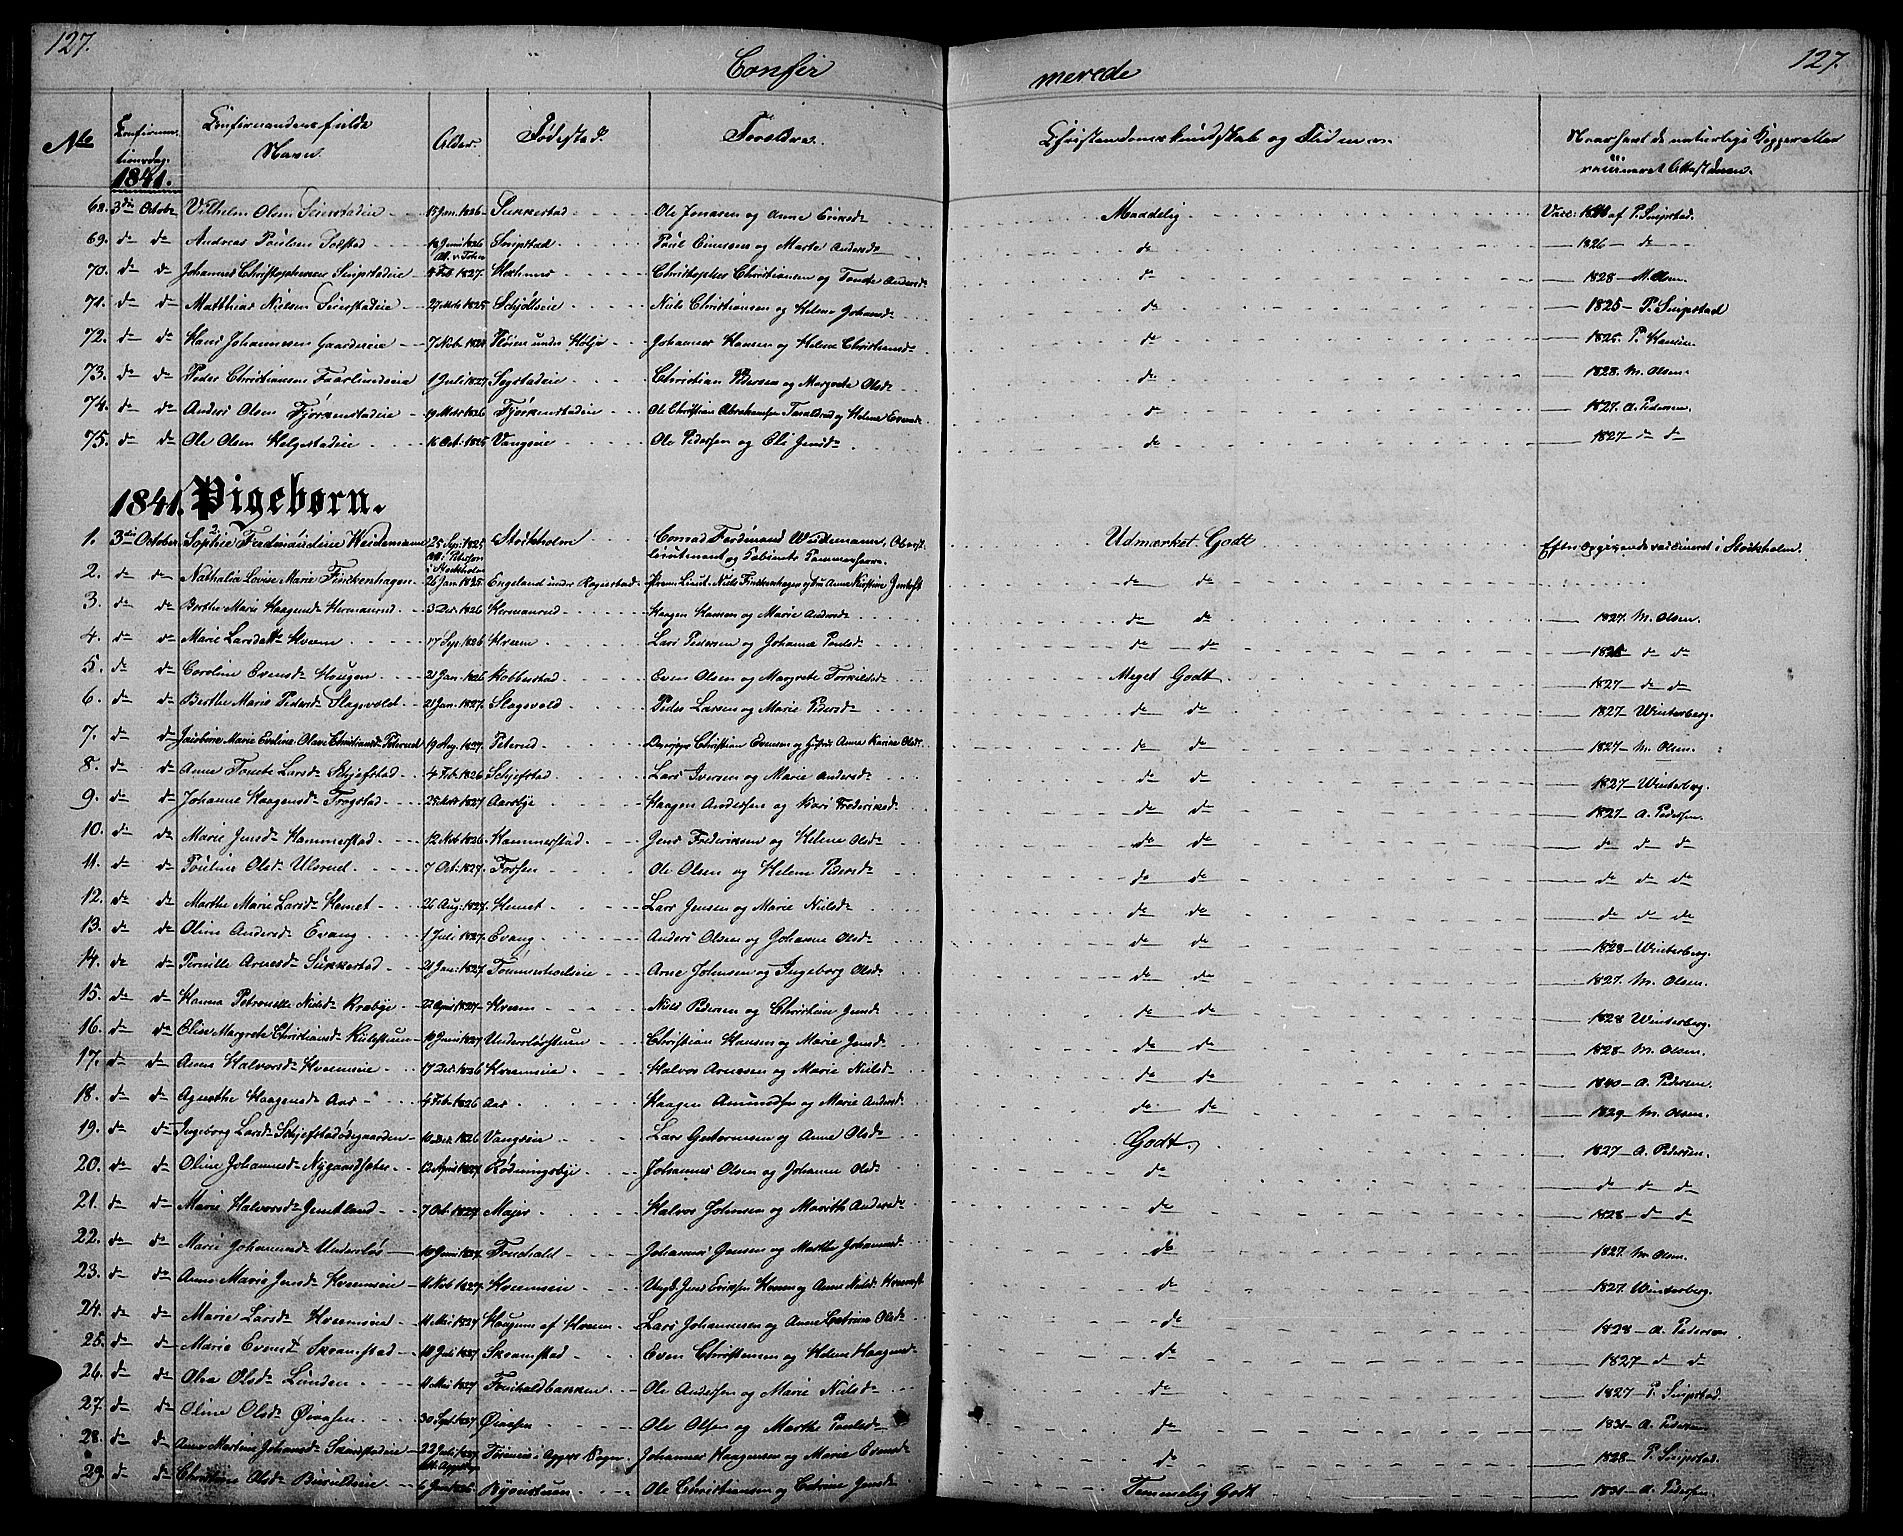 127. 127.
Confir merede
No Confirmationsdag. Confirmandens fulde Navn. Alder. Fødested. Forældre. Christendomskundskab og Flid m. v. Naar havt de naturlige Kopper eller vaccineret Attesteren.
1841.
68. 3die October Vilhelm Olsen 15 Jan. 1826 Sukkestad Ole Jonassen og Anne Eriksd. Maadelig Vacc: af P. Sneipstad.
69. do do Andreas Poulsen 18 Juni 1826 Sneipstad Poul Evensen og Marte Andersd. do 1826 do
70. do do Johannes Christophersen Sneipstadeie 4 Feb. 1827. Christopher Christiansen og Tonete Andersd. do 1828 M. Olsen.
71. do do Matthias Nielsen 27 1825 Schjølseie Niels Christiansen og Helene Johansd. do 1825 P. Sneipstad
72. do do Hans Johannesen Gaardseie 7 Nob. 1824 Fløien under Hol Johannes Hansen og Helene Christiansd. do 1825. P. Hansen.
73. do do Peder Christiansen Faarlundseie 1 Juli 1827 Segstadeie Christian Pedersen og Margrete Olsd. do 1828. M. Olsen.
74. do do Anders Olsen Fjørkenstadeie 19 1826 Fjørkenstadeie Ole Christian Abrahamsen og Helene Evensd. do 1827. A. Pedersen.
75. do do Ole Olsen Helgestadeie 16 Oct. 1825 Vangseie Ole Pedersen og Eli Jensd. do 1827 do do
1841. Pigebørn.
1. 3die October Sophie Ferdinandine Weidemann 25 Sep. 1825 Stockholm Conrad Ferdinand Weidemann, Oberst- Udmærket Godt Efter Opgivende vaccineret i Stockholm.
lieutenant og
2. do do Nathalia Lovise Marie Finckenhagen 26 Jan. 1825. Engeland under Rognestad. Prem. Lieut. Niels Finckenhagen og Fru Anne Kirstine do do
3. do do Berthe Marie Haagensd. Hermanrud 3 Dec. 1826 Hermanrud Haagen Hansen og Marie Andersd. do do 1827. M. Olsen.
4. do do Marie Larsdatter Hveem 17 Sep. 1826 Hveem Lars Pedersen og Johanne Poulsd. do do do do
5. do do Caroline Evensd. Hougen 21 Jan. 1826 Kobberstad Even Olsen og Margrete Torkildsd. Meget Godt 1827 do do
6. do do Berthe Marie Pedersd. Slagsvold 21 Jan. 1827. Slagsvold Peder Larsen og Marie Pedersd. do do 1827 Winterberg.
7. do do Jacobine Marie Eveline Olave Christiansd. Peterud 19 Aug. 1827 Peterud Christian Evensen og Anne Karine Olsd. do do 1827 M. Olsen.
8. do do Anne Tonete Larsd. Schjefstad 4 Feb. 1826 Schjefstad Lars Iversen og Marie Andersd. do do 1827 Winterberg.
9. do do Johanne Haagensd. Trogstad 25 1827 Aarsbye Haagen Andersen og Kari Frederiksd. do do 1827 A. Pedersen.
10. do do Marie Jensd. Hammerstad 12 Nob. 1826 Hammerstad Jens Frederiksen og Helene Olsd. do do do do do
11. do do Pouline Olsd. Ulsrud 7 Oct. 1827 Fossen Ole Olsen og Helene Pedersd. do do do do do
12. do do Marthe Marie Larsd. Hemet 26 Aug. 1827 Hemet Lars Jensen og Marie Nielsd. do do do do do
13. do do Oline Andersd. Evang 1 Juli 1827. Evang Anders Olsen og Johanne Olsd. do do 1828 Winterberg.
14. do do Pernille Arnesd. Sukkestad 21 Jan. 1827 Tømmerholseie Arne Johnsen og Ingeborg Olsd. do do 1827. M. Olsen.
15. do do Hanna Petronelle Nielsd. Krabye 22 April 1827 Hveem Niels Pedersen og Christine Jensd. do do 1828 Winterberg.
16. do do Eline Margrete Christiansd. 10 Juni 1827 Christian Hansen og Marie Jensd. do do 1828 M. Olsen.
17. do do Anne Halvorsd. Hveemseie 17 Dec. 1826 Hveemseie Halvor Arnesen og Marie Nielsd. do do 1840 A. Pedersen.
18. do do Agnethe Haagensd. Aas 4 Feb. 1826 Aas Haagen Amundsen og Marie Andersd. do do 1829 M. Olsen.
19. do do Ingeborg Larsd. Schjefstadødegaarden 10 Dec. 1826 Vangseie Lars Guttormsen og Anne Olsd. Godt. 1827 A. Pedersen.
20. do do Oline Johannesd. Nygaardsæter 12 April 1827 Rødningsbye Johannes Olsen og Johanne Olsd. do do do do
21. do do Marie Halvorsd. Jemtland 7 Oct. 1827 Majer Halvor Johnsen og Marithe Andersd. do 1828 do do
22. do do Marie Johannesd. Underløs 10 Juni 1827. Fouchald Johannes Jensen og Marthe Johannesd. do 1827. M. Olsen.
23. do do Anne Marie Jensd. Hveemseie 11 Nob. 1827. Hveemseie Ungk. Jens Eriksen Hveem og Anne Nielsd. do 1827. Winterberg.
24. do do Marie Larsd. Hveemseie 11 Mai 1827 Haugum af Hveem Lars Johannesen og Anne Catrine Olsd. do 1828 A. Pedersen
25. do do Marie Evensd. Skramstad 10 Juli 1827 Skramstad Even Christensen og Helene Haagensd. do 1827 do do
26. do do Olea Olsd. Lunden 11 Mai 1827 Fouchaldbakken Ole Andersen og Marie Nielsd. do 1827 P. Sneipstad.
27. do do Oline Olsd. Øvaasen 30 Sept. 1827 Øvaasen Ole Olsen og Marthe Poulsd. do 1831 A. Pedersen
28. do do Anne Martine Johansd. 22 Juli Johannes Haagensen og Marie Evensd. do 1828 P. Sneipstad.
29. do do Christine Olsd. 6 Ole Christiansen og Catrine Jensd. Temmelig Godt 1831 A. Pedersen.